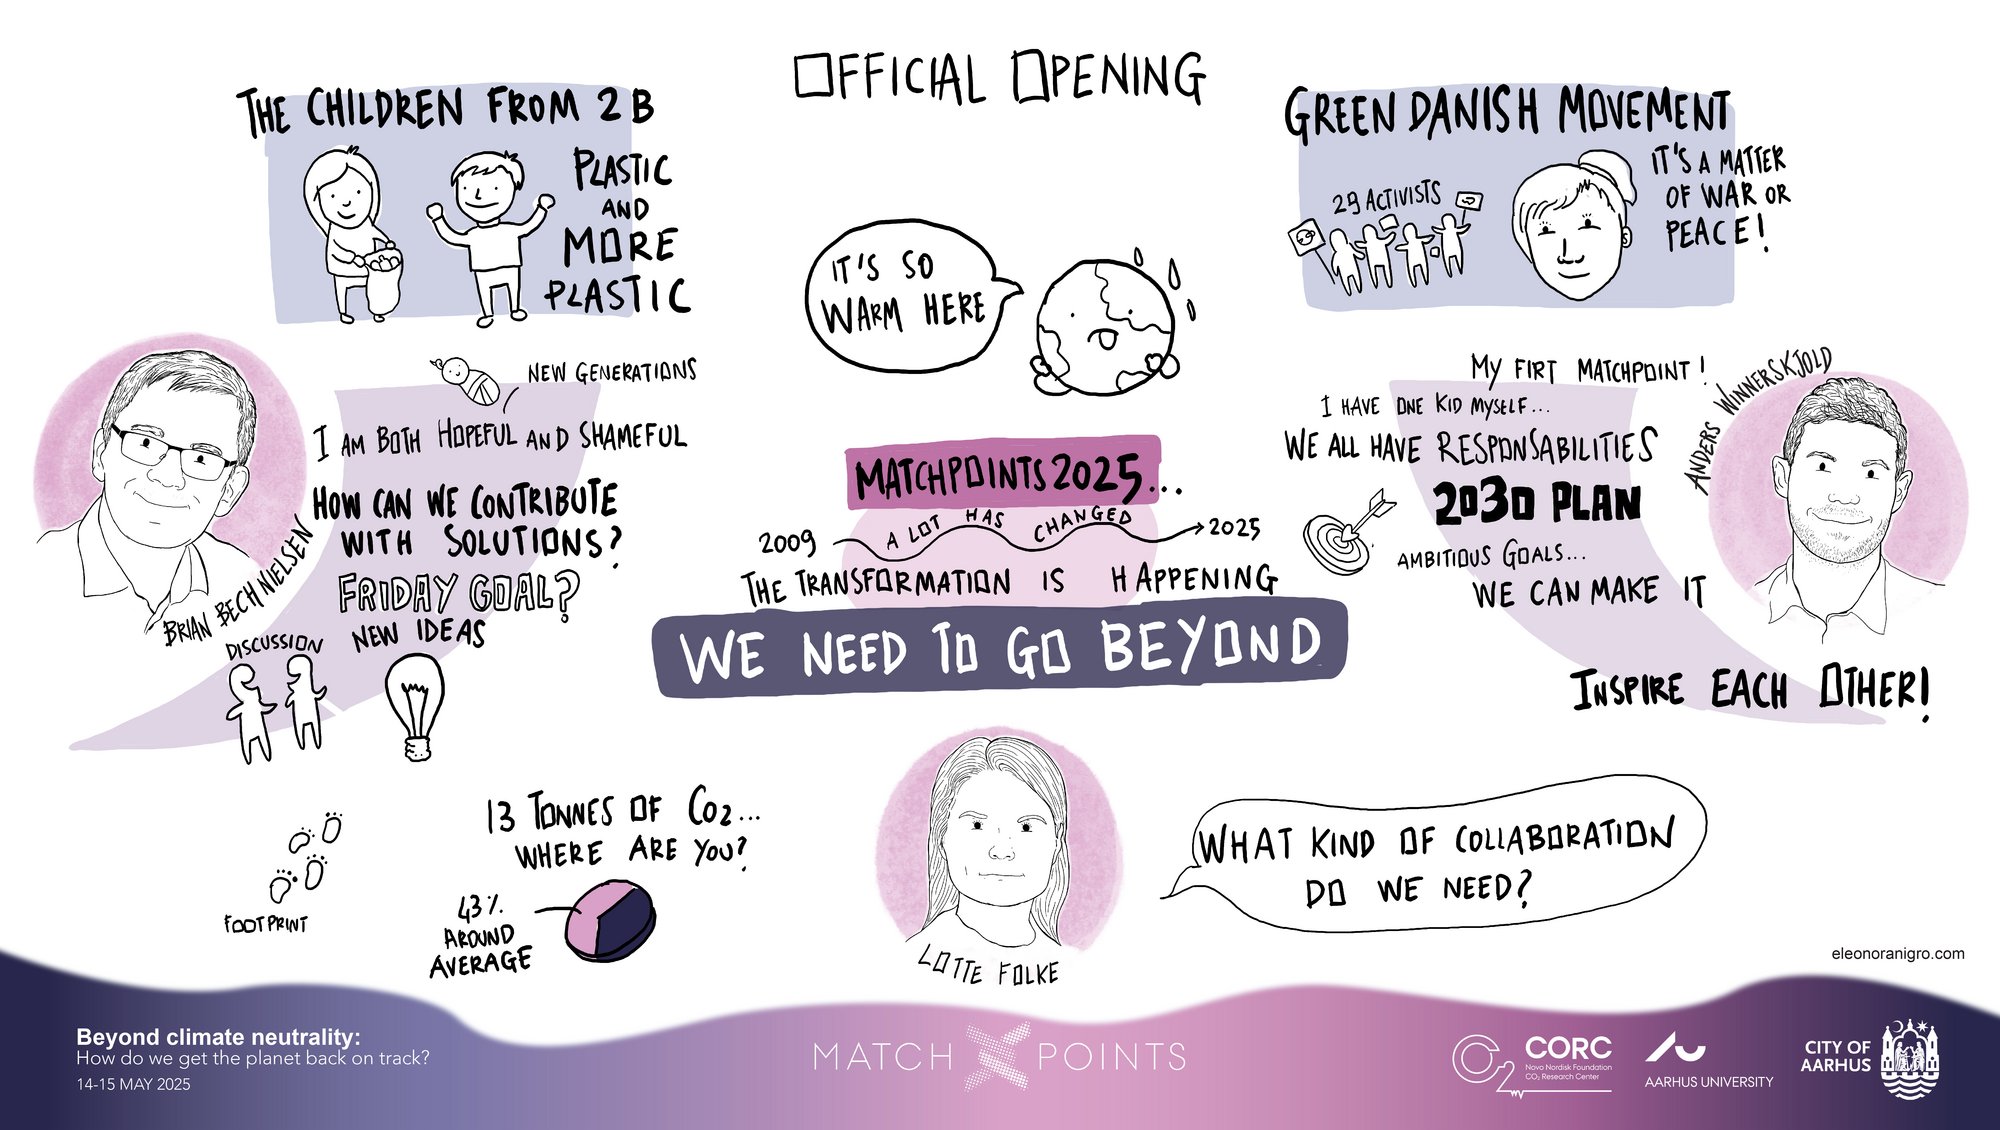 OFFICIAL OPENING
THE CHILDREN FROM 2B
PLASTIC
AND
MORE
PLASTIC
IT'S SO
WARM HERE
GREEN DANISH MOVEMENT
29 ACTIVISTS
IT'S A MATTER
OF WAR OR
PEACE!
NEW GENERATIONS
I AM BOTH HOPEFUL AND SHAMEFUL
HOW CAN WE CONTRIBUTE
WITH SOLUTIONS?
FRIDAY GOAL?
NEW IDEAS
BRIAN BECH NIELSEN
DISCUSSION
MATCHPOINTS2025...
2009 A LOT HAS CHANGED 2025
THE TRANSFORMATION IS HAPPENING
WE NEED TO GO BEYOND
MY FIRT MATCHPOINT!
I HAVE ONE KID MYSELF...
WE ALL HAVE RESPONSABILITIES
2030 PLAN
AMBITIOUS GOALS...
WE CAN MAKE IT
ANDERS WINNERSKJOLD
INSPIRE EACH OTHER!
FOOTPRINT
13 TONNES OF CO2...
WHERE ARE YOU?
43%
AROUND
AVERAGE
LOTTE FOLKE
WHAT KIND OF COLLABORATION
DO WE NEED?
eleonoranigro.com
Beyond climate neutrality:
How do we get the planet back on track?
14-15 MAY 2025
MATCH POINTS
CO2
CORC
Novo Nordisk Foundation
CO₂ Research Center
AARHUS UNIVERSITY
CITY OF
AARHUS